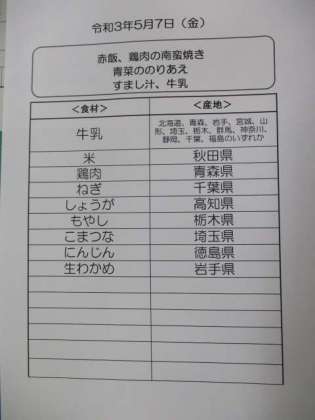 令和3年5月7日（金）
赤飯、鶏肉の南蛮焼き
青菜ののりあえ
すまし汁、牛乳
＜食材＞ ＜産地＞
牛乳 北海道、青森、岩手、宮城、山
形、埼玉、栃木、群馬、神奈川、
静岡、千葉、福島のいずれか
米 秋田県
鶏肉 青森県
ねぎ 千葉県
しょうが 高知県
もやし 栃木県
こまつな 埼玉県
にんじん 徳島県
生わかめ 岩手県